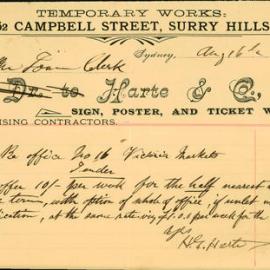 TEMPORARY WORKS:
62 CAMPBELL STREET, SURRY HILLS
Sydney, Aug 16
Town Clerk
Dr. to Harte & C.
SIGN, POSTER, AND TICKET W
ISING CONTRACTORS.
Re office No 16 Victoria Markets
Tender
offer 10/- per week for the half nearest
term, with option of whole of office if unlet
at the same rate, viz £1.0.0 per week for the
yrs
H.G. Harte